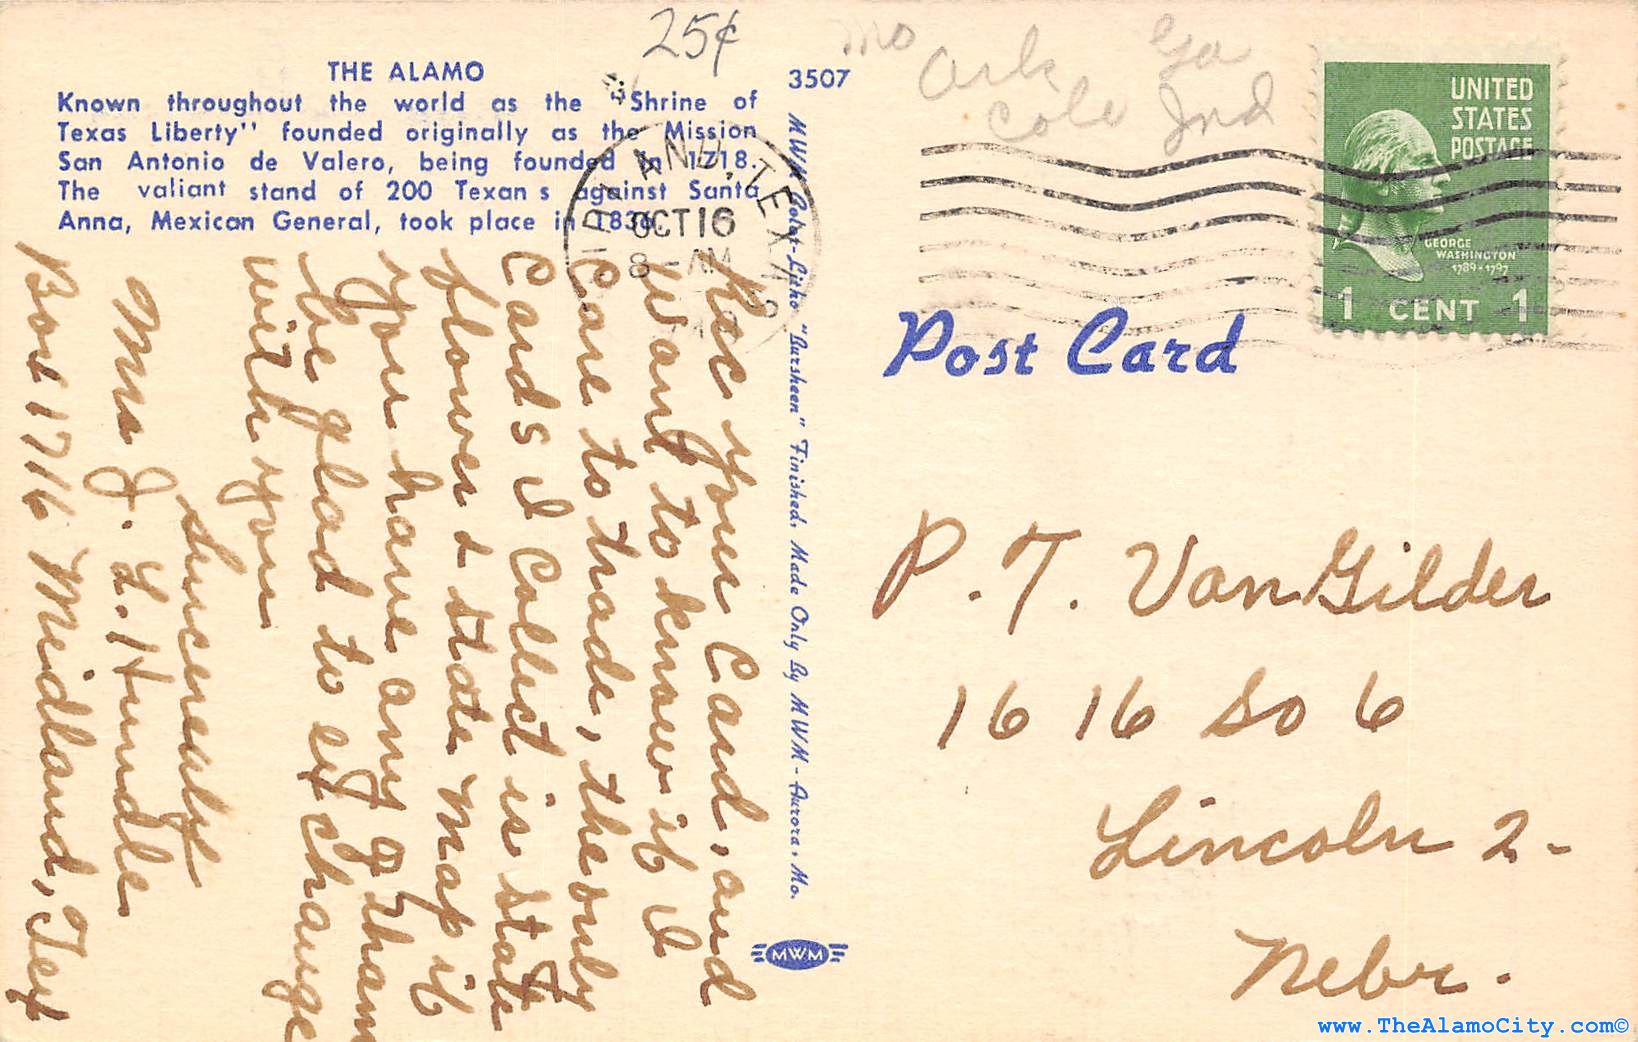 25¢
Mo
Ark
Ga
Cole Ind
THE ALAMO
Known throughout the world as the "Shrine of
Texas Liberty" founded originally as the Mission
San Antonio de Valero, being founded in 1718.
The valiant stand of 200 Texans against Santa
Anna, Mexican General, took place in 1836.
3507
MWM Color-Litho "Bursheen" Finished, Made Only By MWM - Aurora, Mo.
MWM
LAND, TEXAS
OCT 16
8 - AM
UNITED
STATES
POSTAGE
GEORGE
WASHINGTON
1789-1797
1 CENT 1
Post Card
Rec your Card, and
Want to know if I
Care to trade, the only
Cards I Collect is state
flower & state map if
you have any of them
be glad to exchange
with you
Sincerely
Mrs J. L. Hundle
Box 1716 Meidland, Tex
P. T. VanGilder
1616 So 6
Lincoln 2-
Nebr.
www.TheAlamoCity.com©